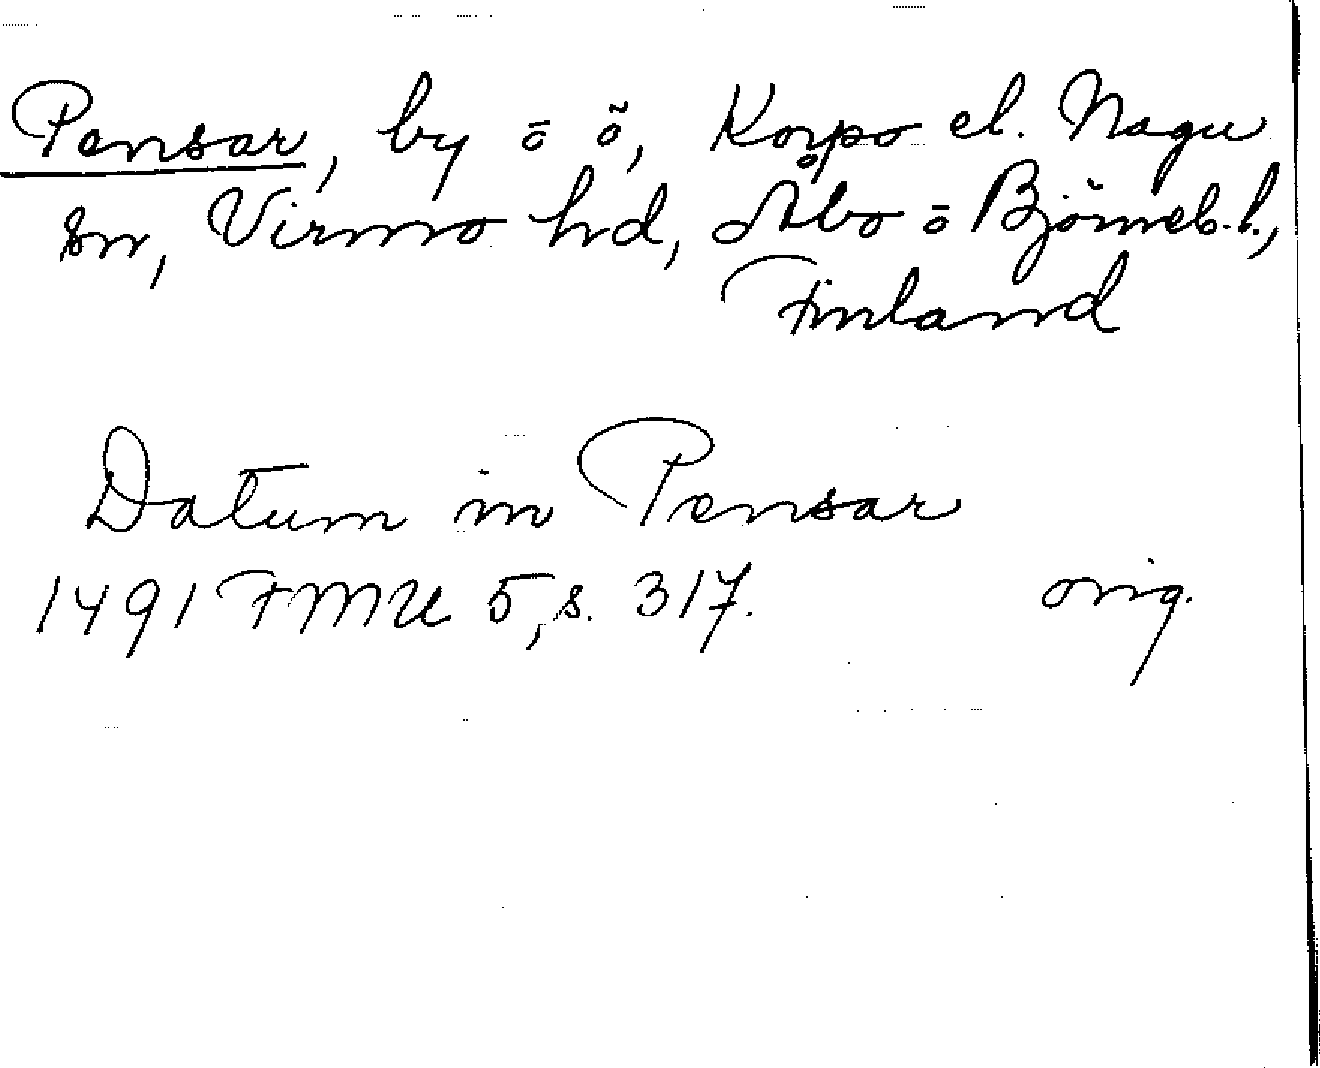 Pensar, by ō ö, Korpo el. Nagu
sn, Virmo hd, Åbo ō Björneb. l.,
Finland
Datum in Pensar
1491 FMU 5, s. 317. orig.